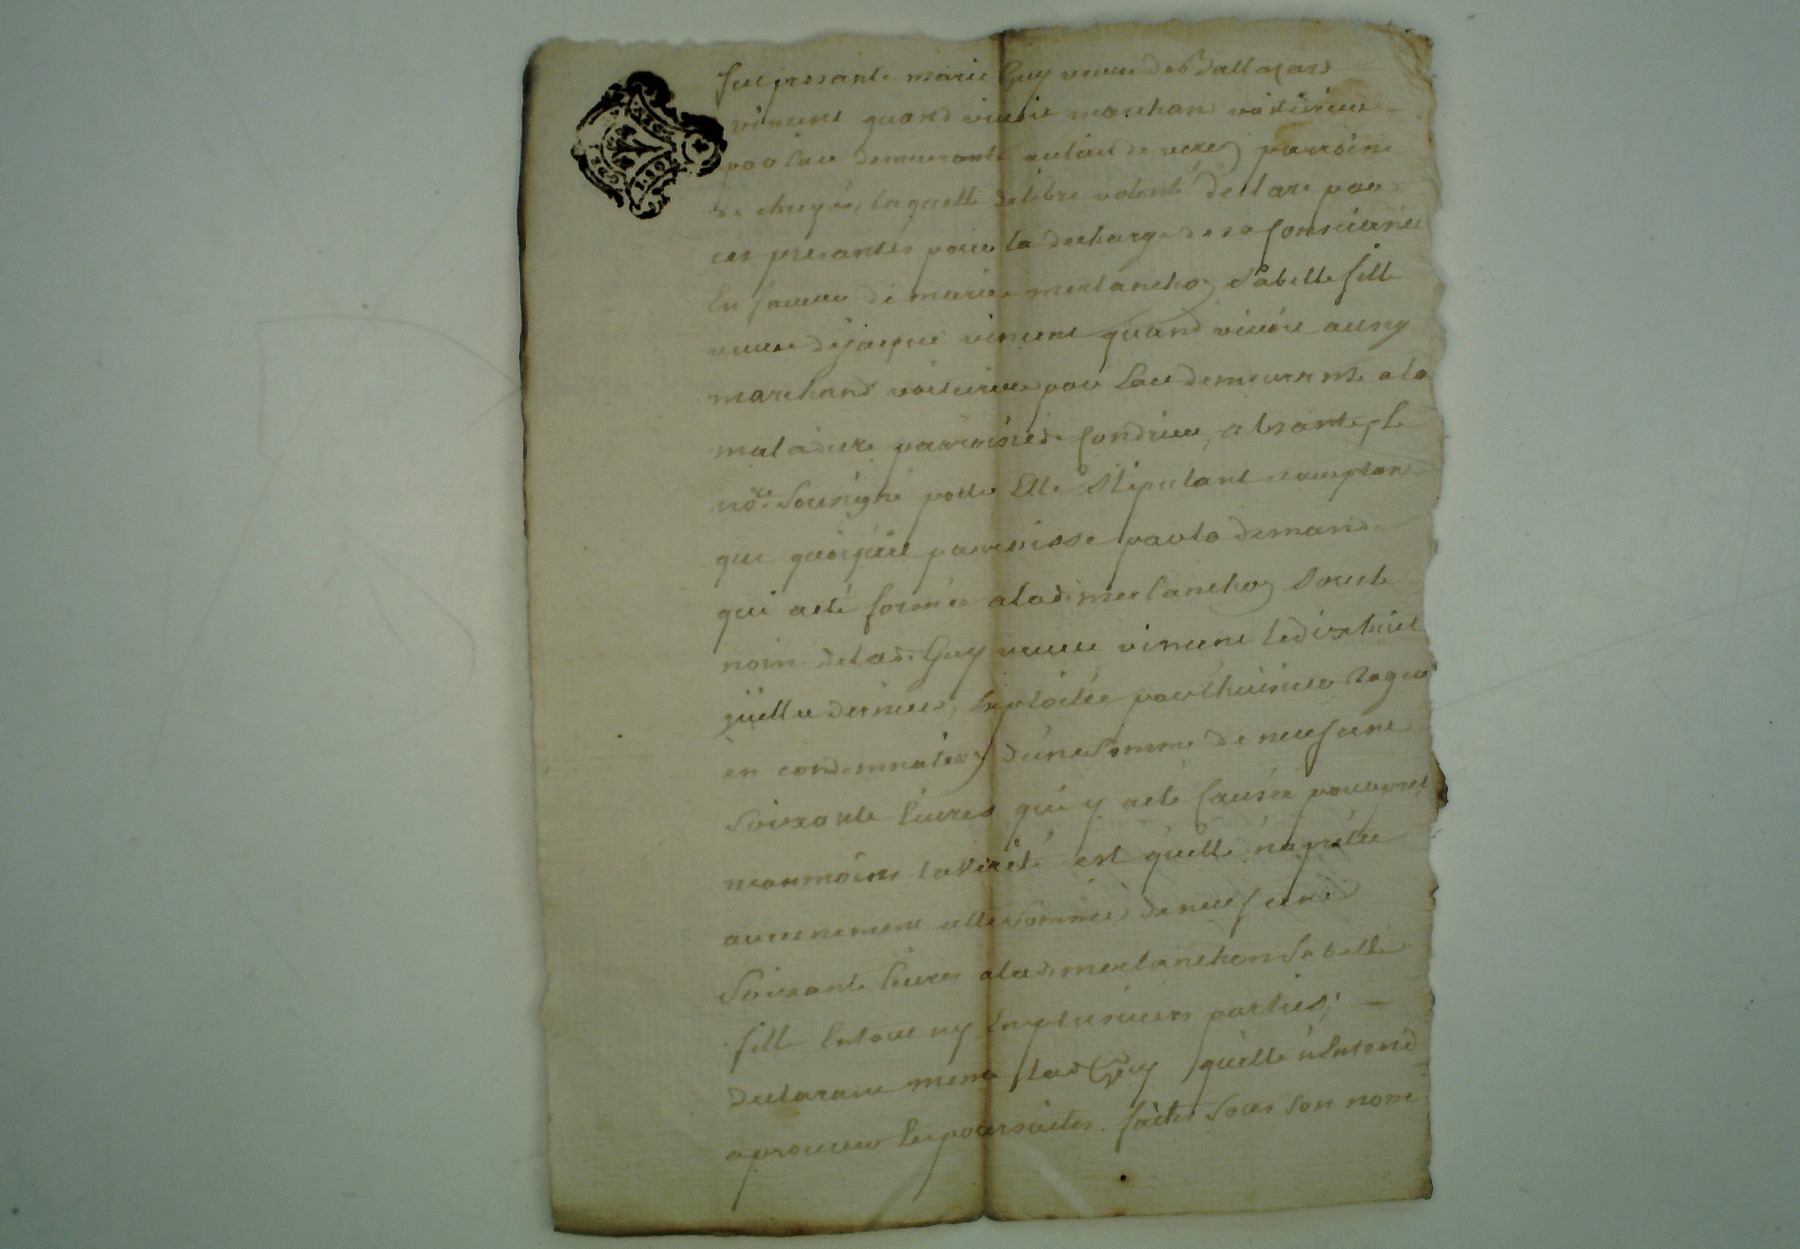 fut presante marie Guy veuve de Baltazard
vincent quand vivoit marchand voiturier
par eau demeurante au lieu de verey parroisse
de cheyés, laquelle de libre volonté declare par
ces presantes pour la decharge de sa Consciance
En faveur de marie merlanchoy Sa belle fille
veuve de jacque vincent quand vivoit aussy
marchand voiturier par Eau demeurante a la
maladiere parroisse de Condrieu, absante, Le
no.re Sousigné pour Elle Stipulant acceptant
que quoiqu'il parroisse par la demande
qui a eté formée a la d. merlanchoy Sous le
nom de la d. Guy veuve vincent le dix huit
juillet dernier, Exploitée par l'huissier
en condemnation d'une Somme de neuf cent
Soixante livres qui y a eté Causée pour pret
neanmoins la verité est qu'elle n'a pretée
aucunement cette Somme de neuf cend
Soixante livres a la d. merlanchon Sa belle
fille En tout ny En plusieurs parties;
declarant meme lad Guy qu'elle n'Entend
aprouver les poursuites faites Sous Son nom